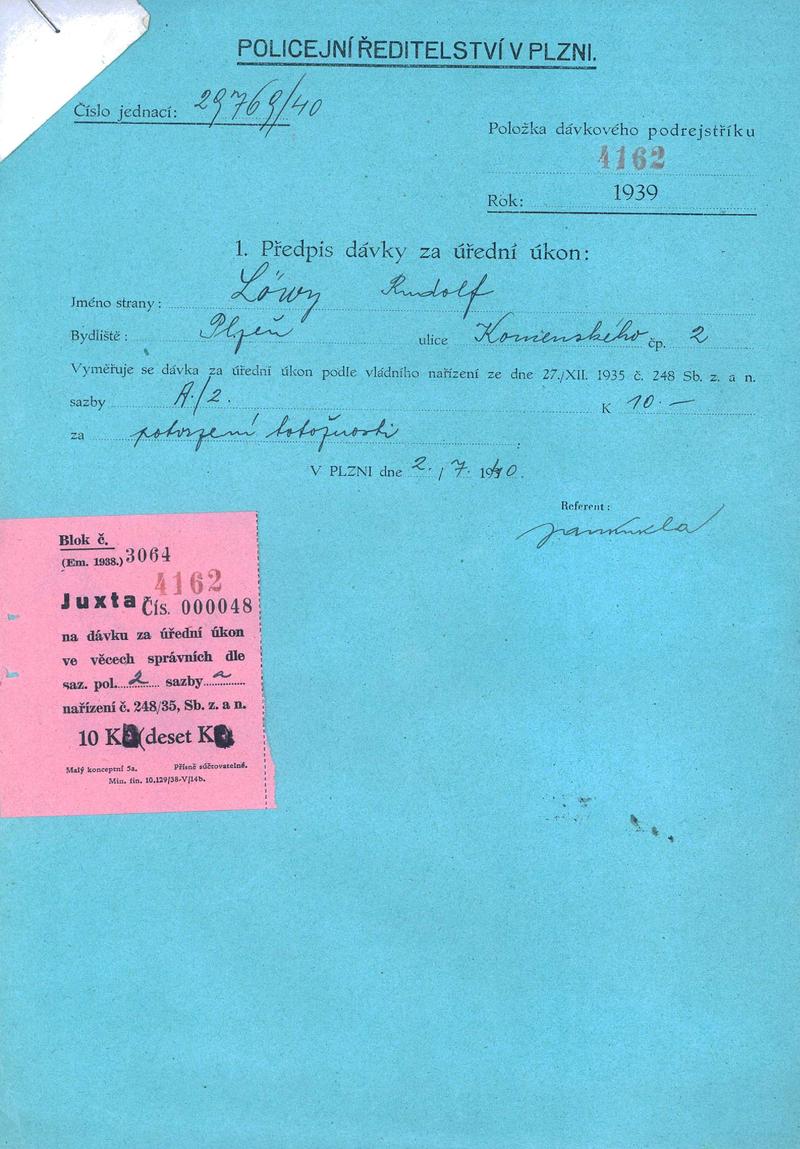 POLICEJNÍ ŘEDITELSTVÍ V PLZNI.
Číslo jednací: 29769/40
Položka dávkového podrejstříku
4162
Rok: 1939
1. Předpis dávky za úřední úkon:
Jméno strany: Löwy Rudolf
Bydliště: Plzeň ulice Komenského čp. 2
Vyměřuje se dávka za úřední úkon podle vládního nařízení ze dne 27./XII. 1935 č. 248 Sb. z. a n.
sazby A./2. K 10.—
za potvrzení totožnosti
V PLZNI dne 2./7. 1940.
Referent:
Blok č.
(Em. 1938.) 3064
4162
Juxta Čís. 000048
na dávku za úřední úkon
ve věcech správních dle
saz. pol. 2 sazby a
nařízení č. 248/35, Sb. z. a n.
10 K (deset K
Malý konceptní 5a. Přísně súčtovatelné.
Min. fin. 10.129/38-V/14b.